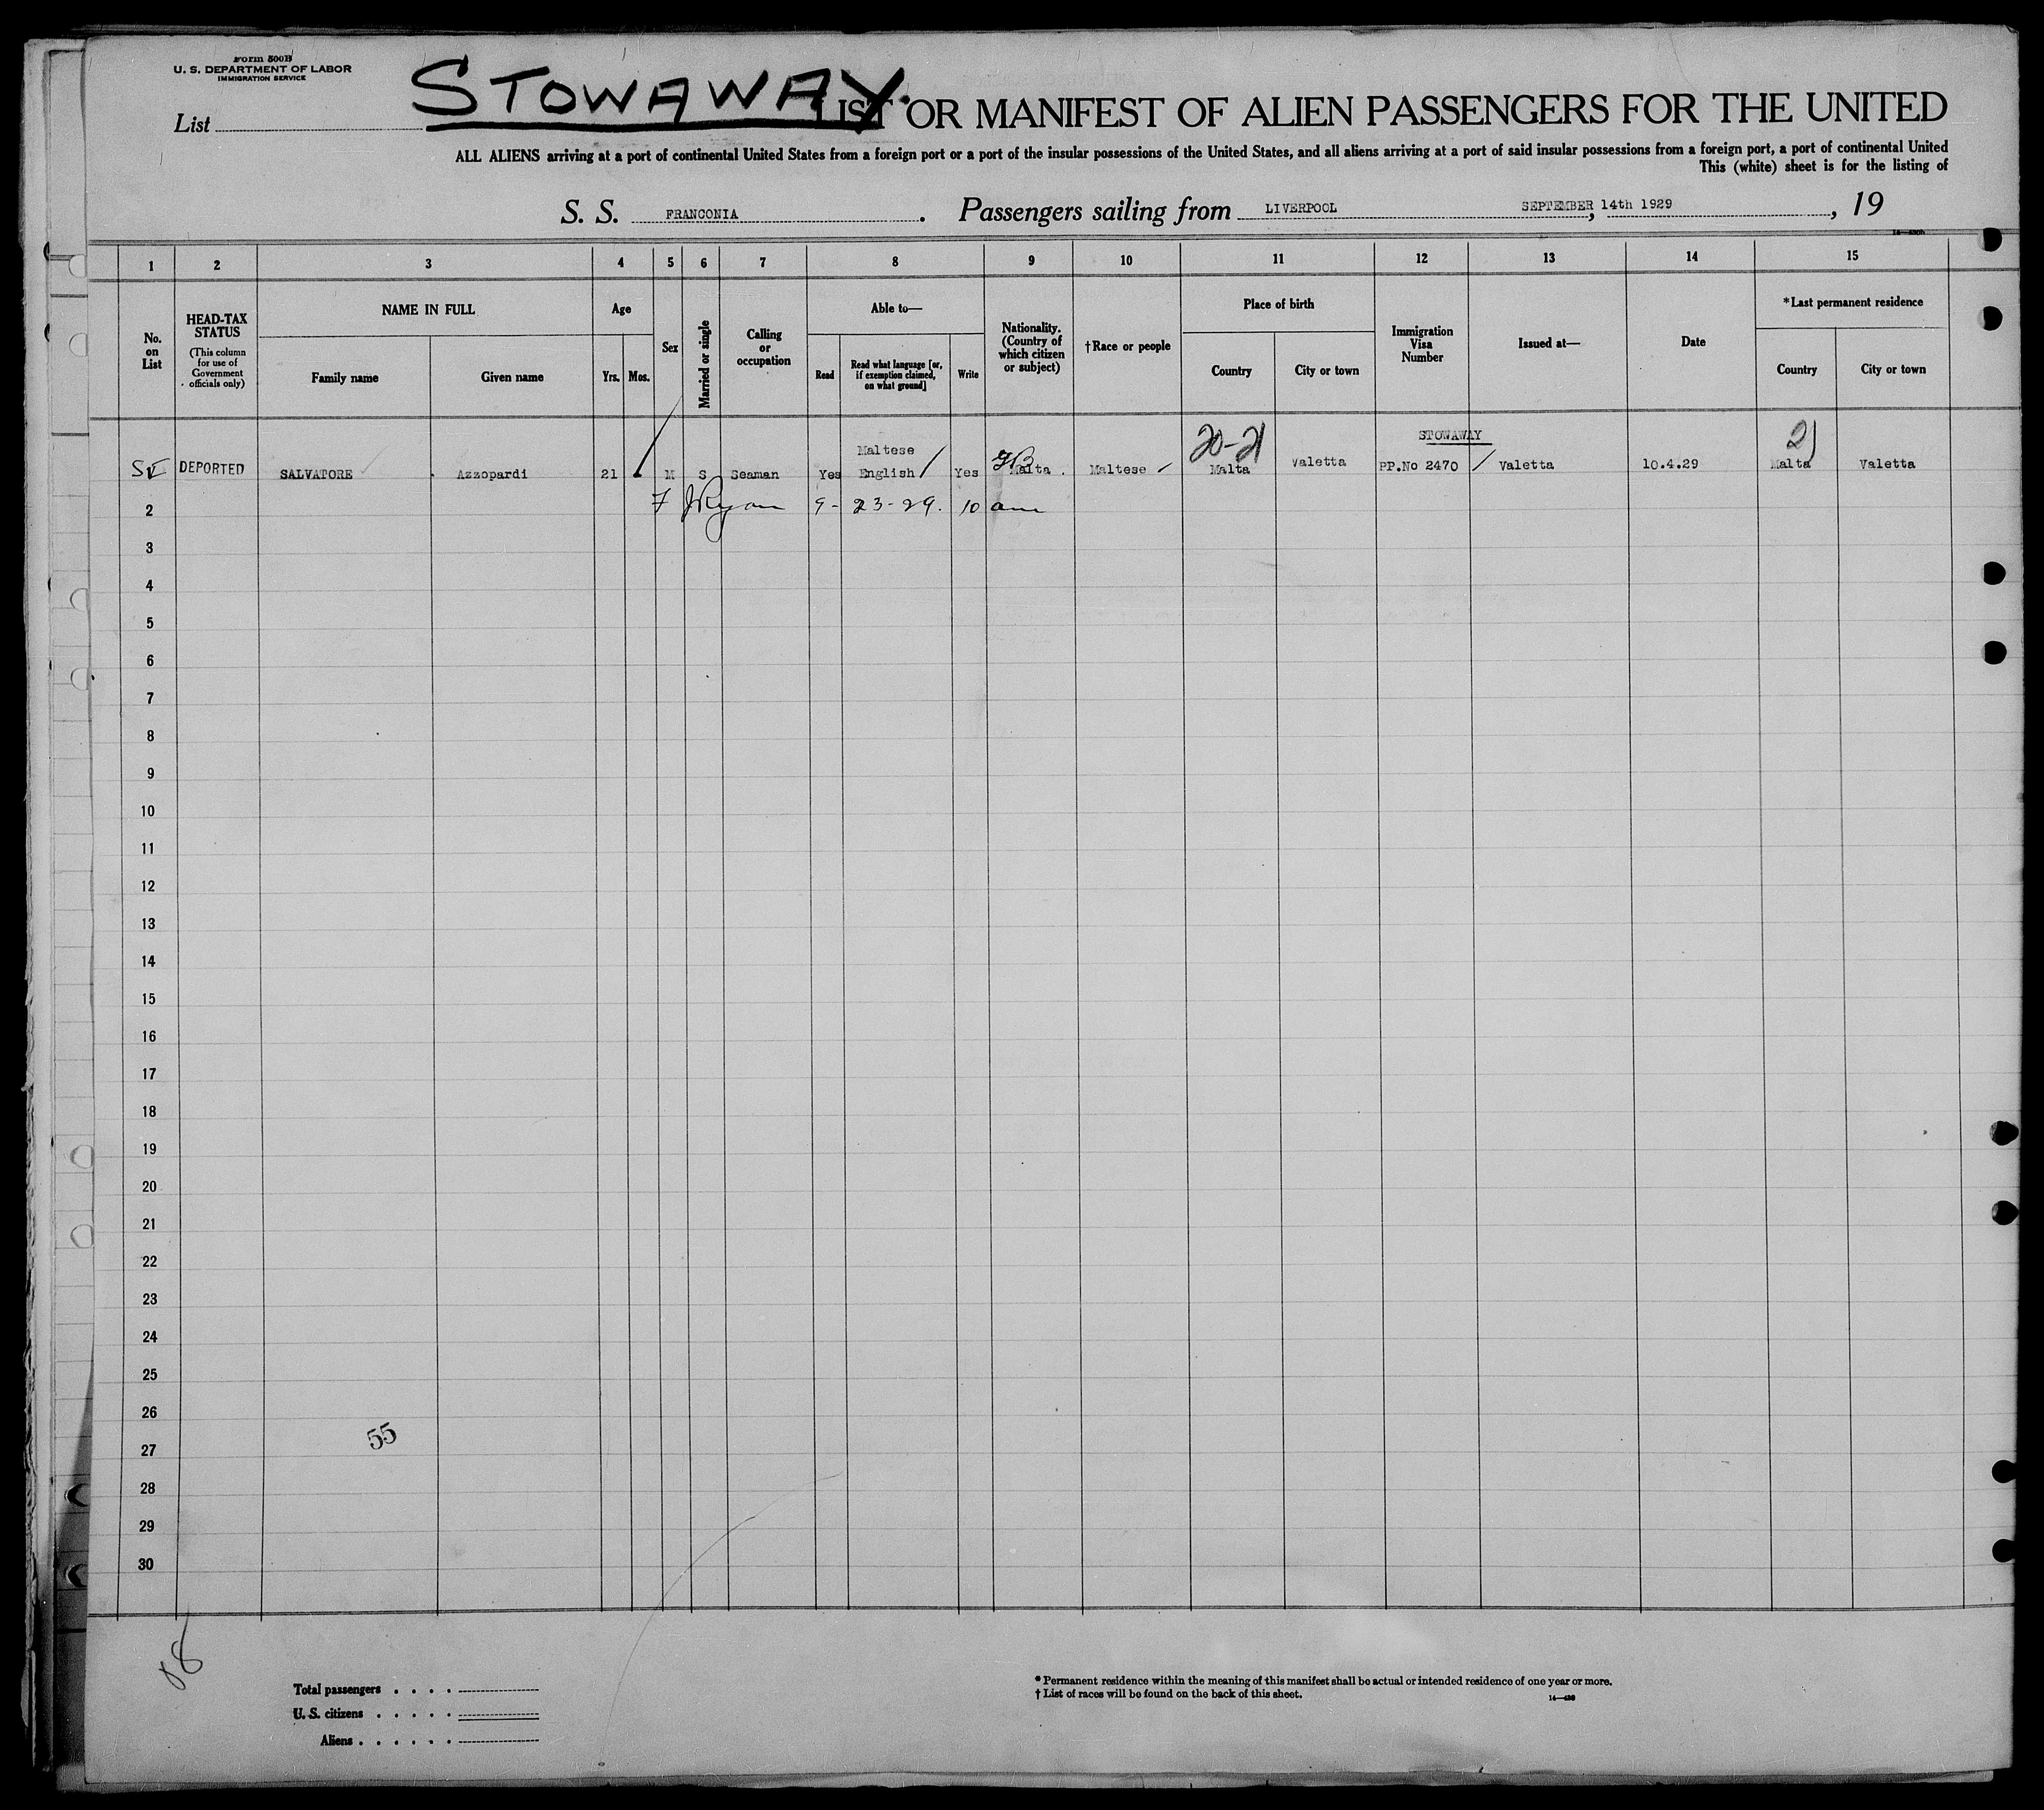 Form 500B
U. S. DEPARTMENT OF LABOR
IMMIGRATION SERVICE
STOWAWAY.
List
LIST OR MANIFEST OF ALIEN PASSENGERS FOR THE UNITED
ALL ALIENS arriving at a port of continental United States from a foreign port or a port of the insular possessions of the United States, and all aliens arriving at a port of said insular possessions from a foreign port, a port of continental United
This (white) sheet is for the listing of
S. S. FRANCONIA . Passengers sailing from LIVERPOOL SEPTEMBER 14th 1929 , 19
1 2 3 4 5 6 7 8 9 10 11 12 13 14 15
No. on List
HEAD-TAX STATUS
(This column for use of Government officials only)
NAME IN FULL
Family name
Given name
Age
Yrs.
Mos.
Sex
Married or single
Calling or occupation
Able to—
Read
Read what language [or, if exemption claimed, on what ground]
Write
Nationality. (Country of which citizen or subject)
†Race or people
Place of birth
Country
City or town
Immigration Visa Number
Issued at—
Date
*Last permanent residence
Country
City or town
Maltese 20-21 STOWAWAY 21
DEPORTED SALVATORE Azzopardi 21 M S Seaman Yes English / Yes Malta Maltese Malta Valetta PP.No 2470 / Valetta 10.4.29 Malta Valetta
2 F J Ryan 9-23-29. 10 am
3
4
5
6
7
8
9
10
11
12
13
14
15
16
17
18
19
20
21
22
23
24
25
26
55
27
28
29
30
Total passengers
U. S. citizens
Aliens
* Permanent residence within the meaning of this manifest shall be actual or intended residence of one year or more.
† List of races will be found on the back of this sheet.